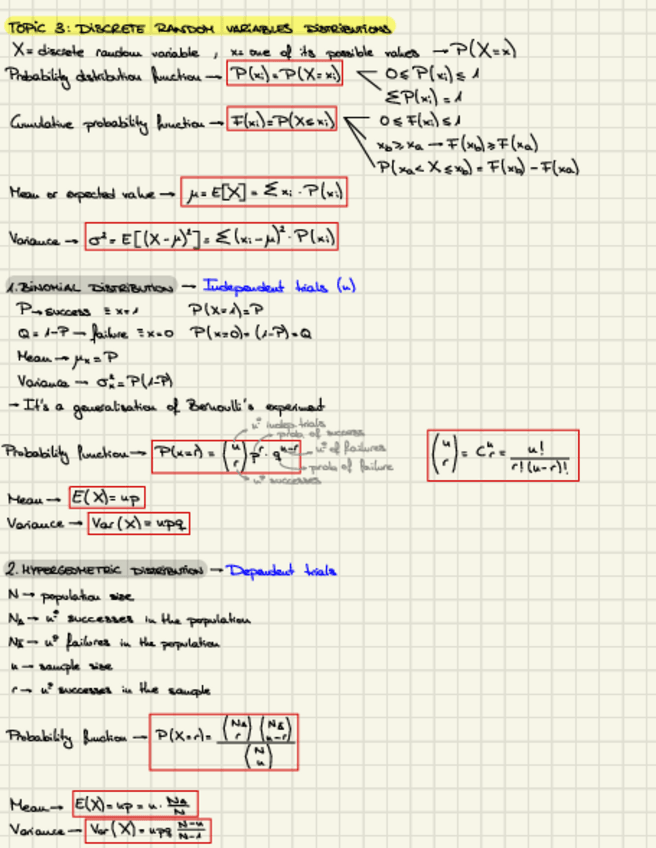 TOPIC 3: DISCRETE RANDOM VARIABLES DISTRIBUTIONS
X = discrete random variable , x = one of its possible values → P(X=x)
Probability distribution function → P(xᵢ) = P(X=xᵢ)
0 ≤ P(xᵢ) ≤ 1
ΣP(xᵢ) = 1
Cumulative probability function → F(xᵢ) = P(X≤xᵢ)
0 ≤ F(xᵢ) ≤ 1
x_b ≥ x_a → F(x_b) ≥ F(x_a)
P(x_a < X ≤ x_b) = F(x_b) - F(x_a)
Mean or expected value → μ = E[X] = Σ xᵢ · P(xᵢ)
Variance → σ² = E[(X-μ)²] = Σ(xᵢ-μ)² · P(xᵢ)
1. BINOMIAL DISTRIBUTION → Independent trials (n)
P → success ≡ x=1 P(X=1) = P
Q = 1-P → failure ≡ x=0 P(x=0) = (1-P) = Q
Mean → μₓ = P
Variance → σ²ₓ = P(1-P)
→ It's a generalisation of Bernoulli's experiment
nº indep. trials
prob. of success
Probability function → P(x=r) = (n r) pʳ · qⁿ⁻ʳ
nº of failures
prob. of failure
nº successes
(n r) = Cⁿᵣ = n! / r!(n-r)!
Mean → E(X) = np
Variance → Var(X) = npq
2. HYPERGEOMETRIC DISTRIBUTION → Dependent trials
N → population size
N_A → nº successes in the population
N_Ā → nº failures in the population
n → sample size
r → nº successes in the sample
Probability function → P(X=r) = (N_A r) (N_Ā n-r) / (N n)
Mean → E(X) = np = n · N_A/N
Variance → Var(X) = npq N-n/N-1